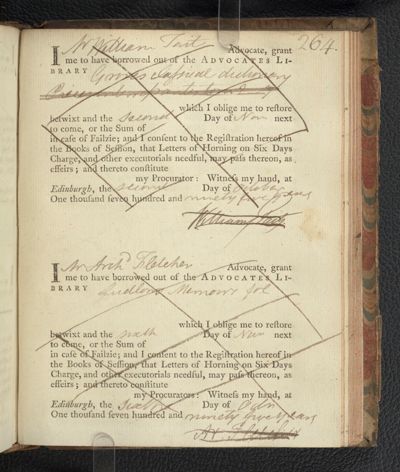 264.
I Mr William Tait Advocate, grant
me to have borrowed out of the ADVOCATES LI-
BRARY Classical dictionary
which I oblige me to reſtore
betwixt and the Second Day of Nov next
to come, or the Sum of
in caſe of Failzie; and I conſent to the Regiſtration hereof in
the Books of Seſſion, that Letters of Horning on Six Days
Charge, and other executorials needful, may paſs thereon, as
effeirs; and thereto conſtitute
my Procurator: Witneſs my hand, at
Edinburgh, the second Day of October
One thouſand ſeven hundred and ninety five years
William Tait
I Mr Archd Fletcher Advocate, grant
me to have borrowed out of the ADVOCATES LI-
BRARY Ludlows Memoirs fol
which I oblige me to reſtore
betwixt and the sixth Day of Nov next
to come, or the Sum of
in caſe of Failzie; and I conſent to the Regiſtration hereof in
the Books of Seſſion, that Letters of Horning on Six Days
Charge, and other executorials needful, may paſs thereon, as
effeirs; and thereto conſtitute
my Procurators: Witneſs my hand, at
Edinburgh, the sixth Day of
One thouſand ſeven hundred and ninety five years
Ar Fletcher